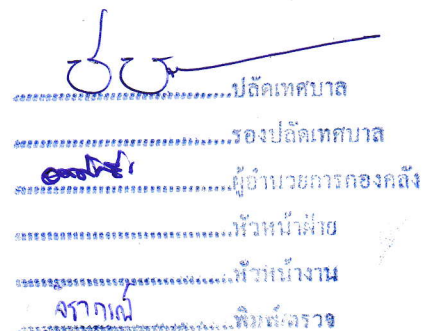 ปลัดเทศบาล
รองปลัดเทศบาล
ผู้อำนวยการกองคลัง
หัวหน้าฝ่าย
หัวหน้างาน
จิราภรณ์ พิมพ์/ตรวจ